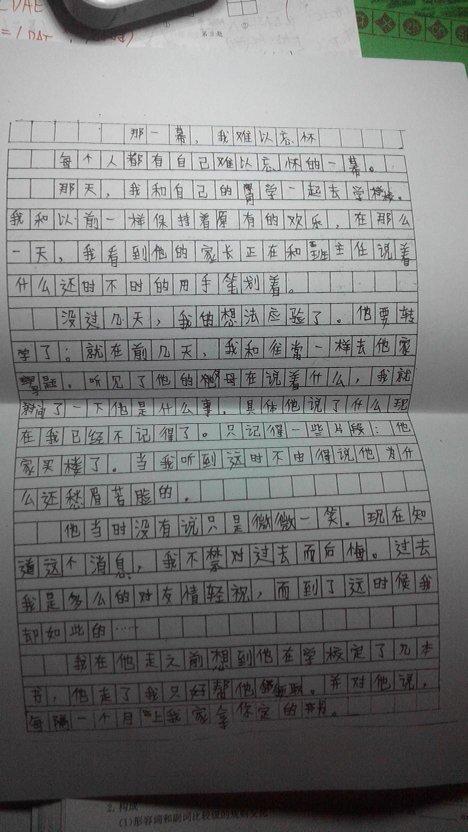 那一幕，我难以忘怀
每个人都有自己难以忘怀的一幕。
那天，我和自己的同学一起去学校。
我和以前一样保持着原有的欢乐，在那么
一天，我看到他的家长正在和班主任说着
什么还时不时的用手笔划着。
没过几天，我的想法应验了。他要转
学了；就在前几天，我和往常一样去他家
听见了他的父母在说着什么，我就
询问了一下他是什么事，具体他说了什么现
在我已经不记得了。只记得一些片段：他
家买楼了。当我听到这时不由得说他为什
么还愁眉苦脸的。
他当时没有说只是微微一笑。现在知
道这个消息，我不禁对过去而后悔。过去
我是多么的对友情轻视，而到了这时候我
却如此的……
我在他走之前想到他在学校定了几本
书，他走了我只好帮他领取。并对他说，
每隔一个月上我家拿你定的书。